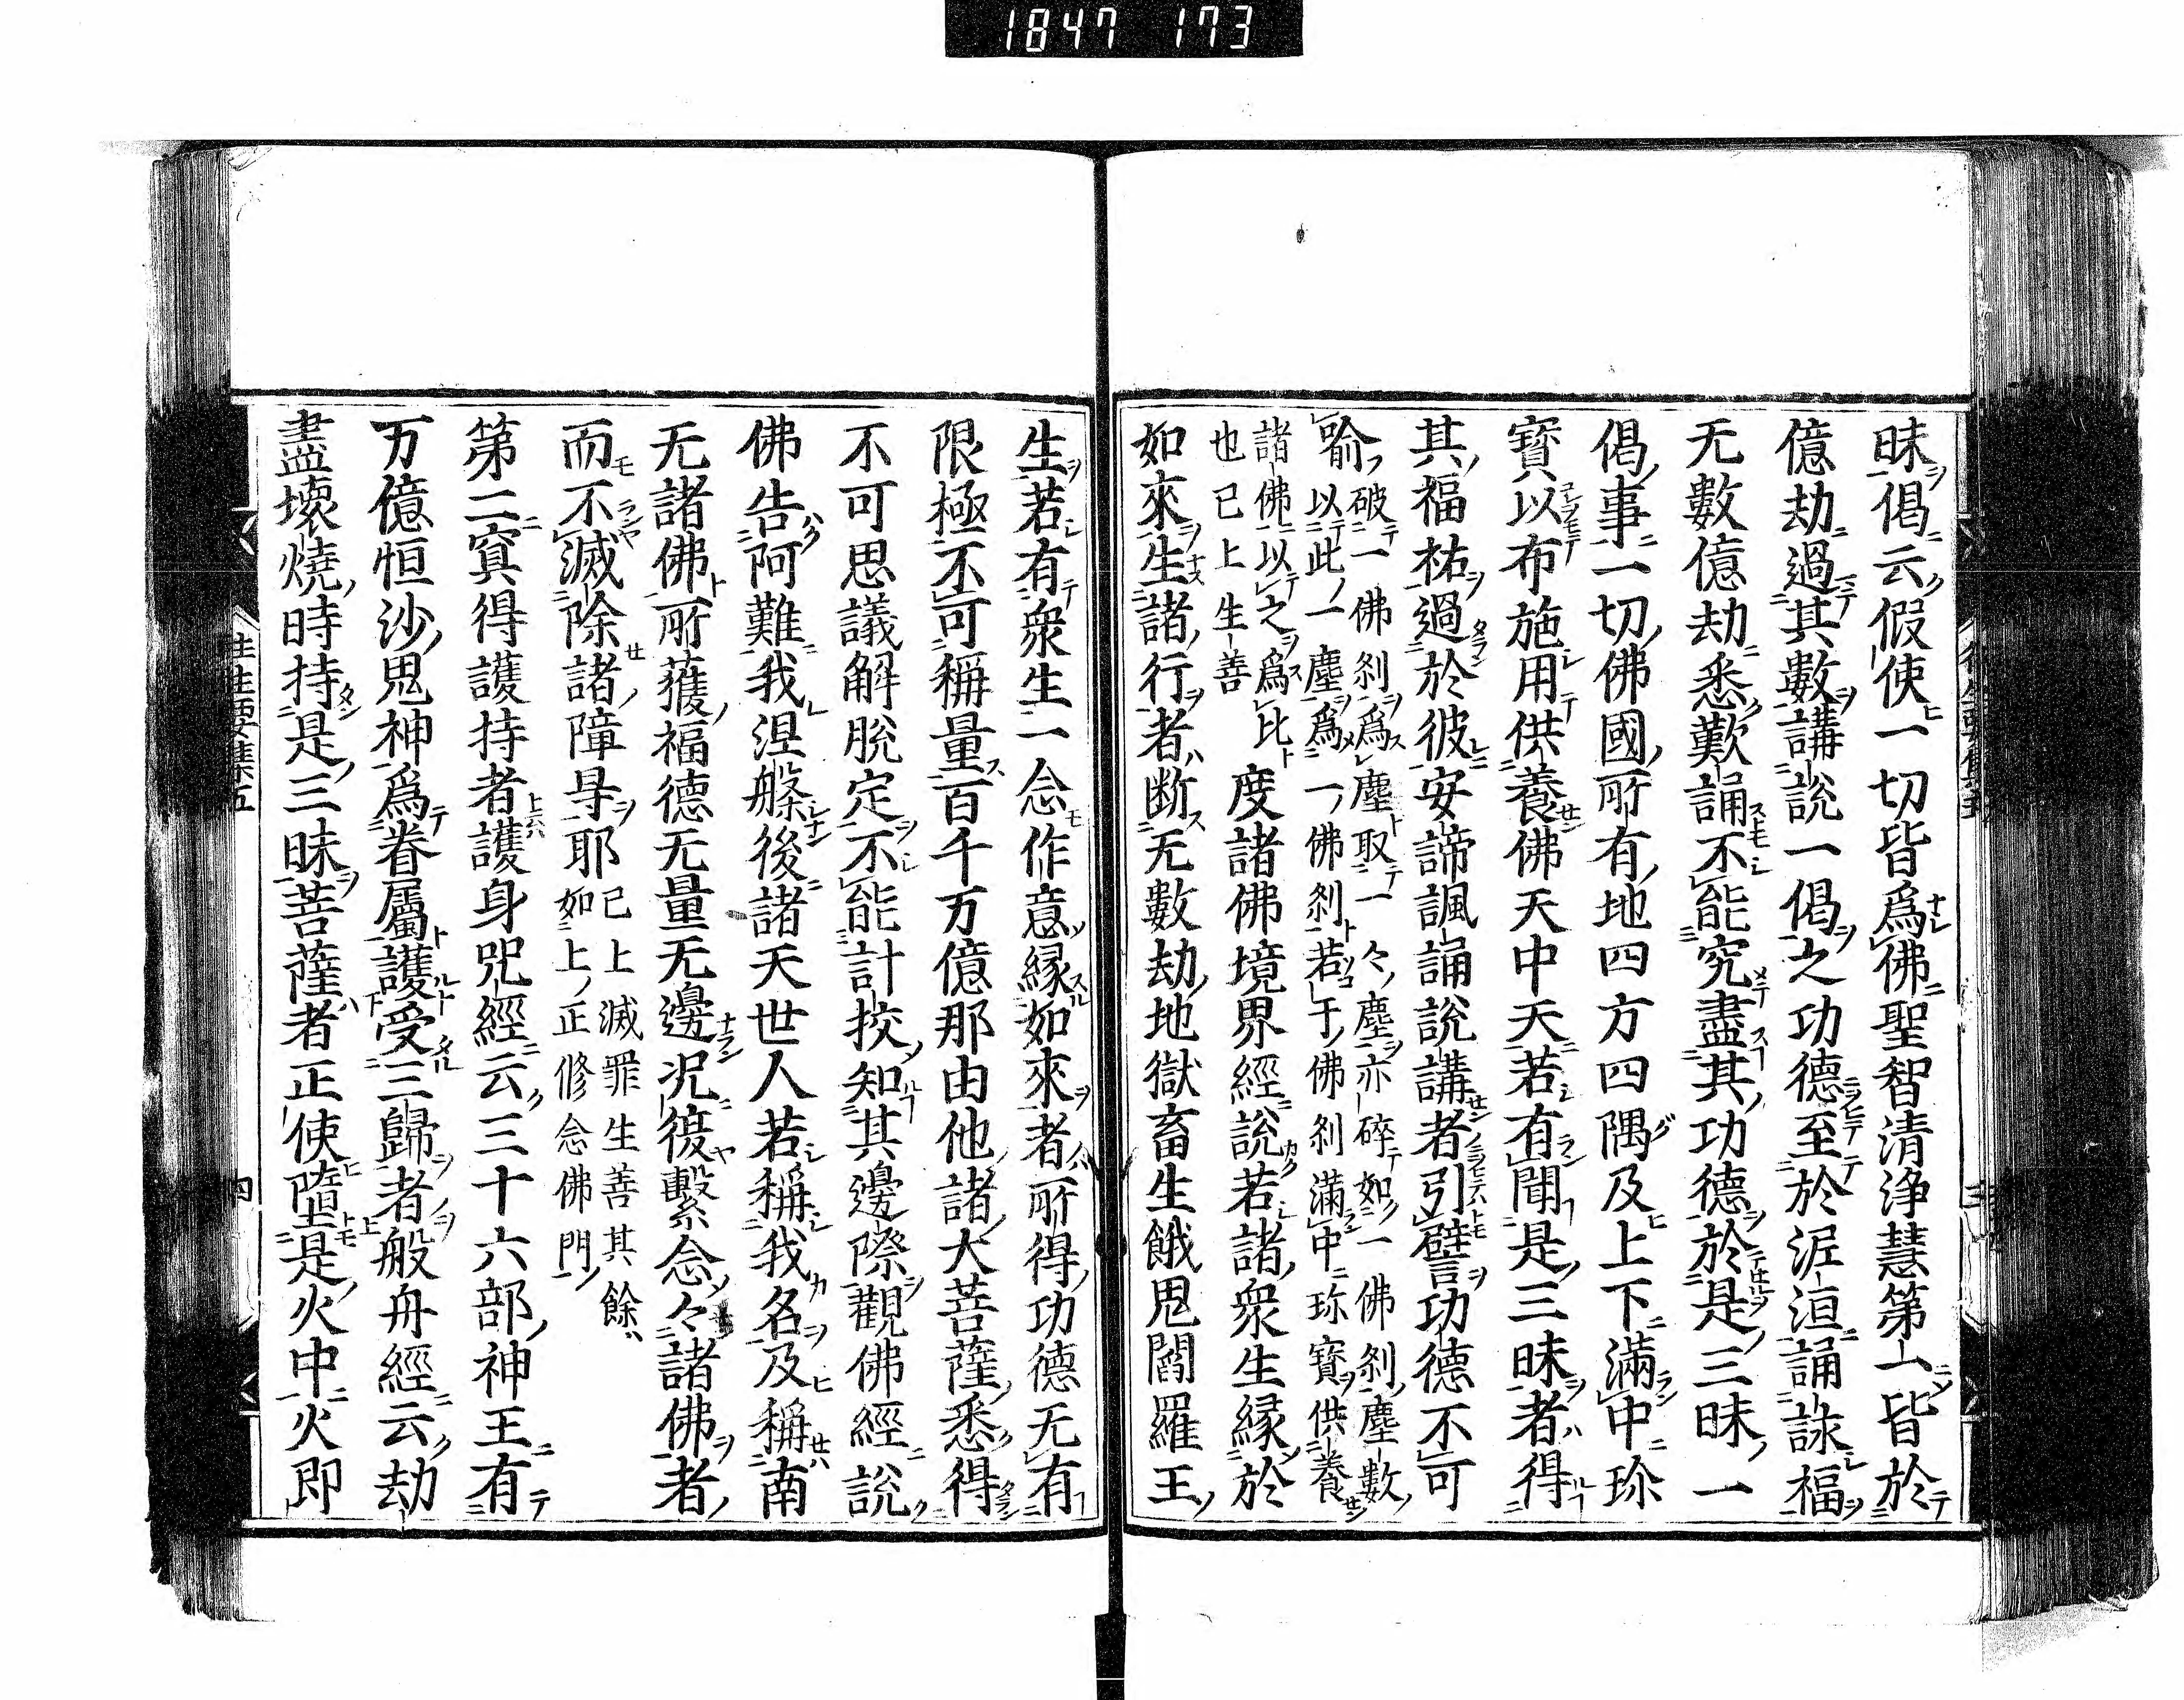 1847 173
昧偈云假使一切皆爲佛聖智清浄慧第一皆於
億劫過其數講説一偈之功德至於泥洹誦詠福
无數億劫悉歎誦不能究盡其功德於是三昧一
偈事一切佛國所有地四方四隅及上下滿中珎
寳以布施用供養佛天中天若有聞是三昧者得
其福祐過於彼安諦諷誦説講者引譬功德不可
喻破一佛刹爲塵取一々塵亦碎如一佛刹塵數
以此一塵爲一佛刹若于佛刹滿中珎寳供養
諸佛以之爲比
也已上生善
度諸佛境界經説若諸衆生縁於
如來生諸行者断无數劫地獄畜生餓鬼閻羅王
生若有衆生一念作意縁如來者所得功德无有
限極不可稱量百千万億那由他諸大菩薩悉得
不可思議解脱定不能計挍知其邊際觀佛經説
佛告阿難我涅槃後諸天世人若稱我名及稱南
无諸佛所獲福德无量无邊况復繫念々諸佛者
而不滅除諸障㝵耶
已上滅罪生善其餘
如上正修念佛門
第二冥得護持者護身呪經云三十六部神王有
万億恒沙鬼神爲眷屬護受三歸者般舟經云劫
盡壞燒時持是三昧菩薩者正使墮是火中火即
往生要集五
四